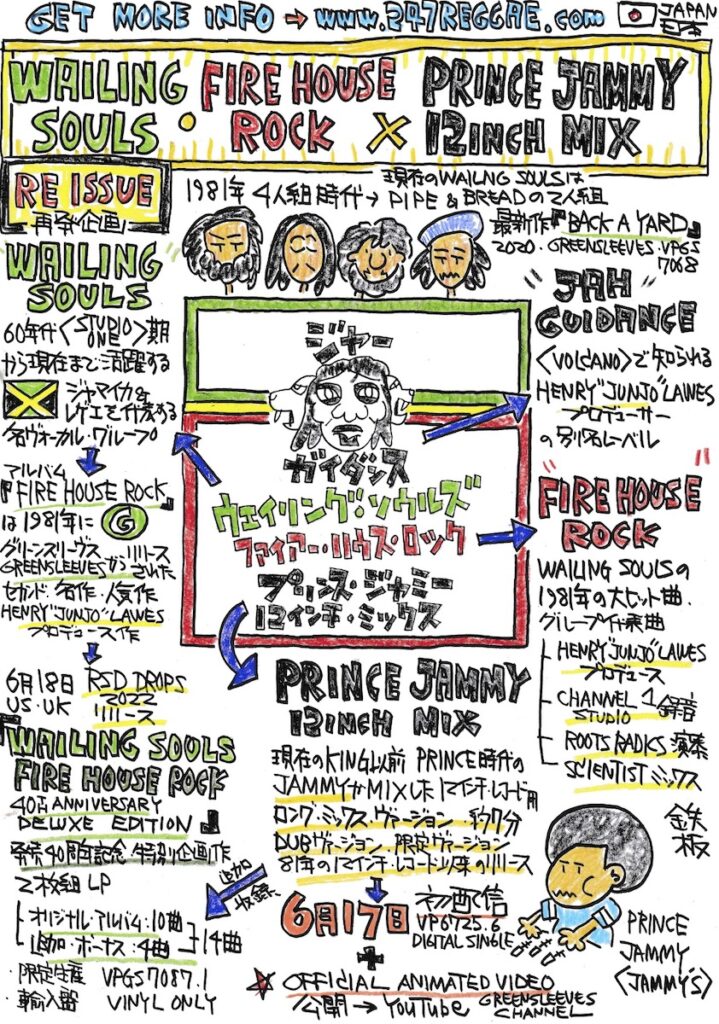 GET MORE INFO → www.247REGGAE.com
JAPAN
日本
WAILING SOULS・FIRE HOUSE ROCK × PRINCE JAMMY 12INCH MIX
RE ISSUE
再発企画
1981年 4人組時代→
現在のWAILNG SOULSは
PIPE & BREADの2人組
最新作『BACK A YARD』
2020. GREENSLEEVES. VPGS
7068
"WAILING SOULS"
60年代〈STUDIO ONE〉期
から現在まで活躍する
ジャマイカ&
レゲエを代表する
名ヴォーカル・グループ
アルバム
『FIRE HOUSE ROCK』
は1981年に G
グリーンスリーヴス
GREENSLEEVESからリリースされた
セカンド. 名作・人気作
HENRY"JUNJO"LAWES
プロデュース作
6月18日 RSD DROPS
US・UK 2022
リリース
『WAILING SOULS
FIRE HOUSE ROCK
40TH ANNIVERSARY
DELUXE EDITION』
発売40周年記念・特別企画作
2枚組LP
オリジナル・アルバム:10曲
追加・ボーナス:4曲
14曲
・限定生産 VPGS7087.1
・輸入盤 VINYL ONLY
追加収録
ジャー
ガイダンス
ウェイリング・ソウルズ
ファイアー・ハウス・ロック
プリンス・ジャミー
12インチ・ミックス
"JAH GUIDANCE"
〈VOLCANO〉で知られる
HENRY"JUNJO"LAWES
プロデューサー
の別名レーベル
"FIRE HOUSE ROCK"
WAILING SOULSの
1981年の大ヒット曲.
グループ代表曲
HENRY"JUNJO"LAWES
プロデュース
CHANNEL 1 STUDIO 録音
ROOTS RADICS 演奏
SCIENTIST ミックス
PRINCE JAMMY
12INCH MIX
現在のKING以前 PRINCE時代の
JAMMYがMIXした12インチ・レコード用
ロング・ミックス・ヴァージョン 約7分
DUBヴァージョン. 限定ヴァージョン
81年の12インチ・レコード以来のリリース
6月17日 初配信
VP6725.6
DIGITAL SINGLE
+
☆ OFFICIAL ANIMATED VIDEO
公開→YouTube GREENSLEEVES CHANNEL
鉄板
PRINCE
JAMMY
〈JAMMY'S〉